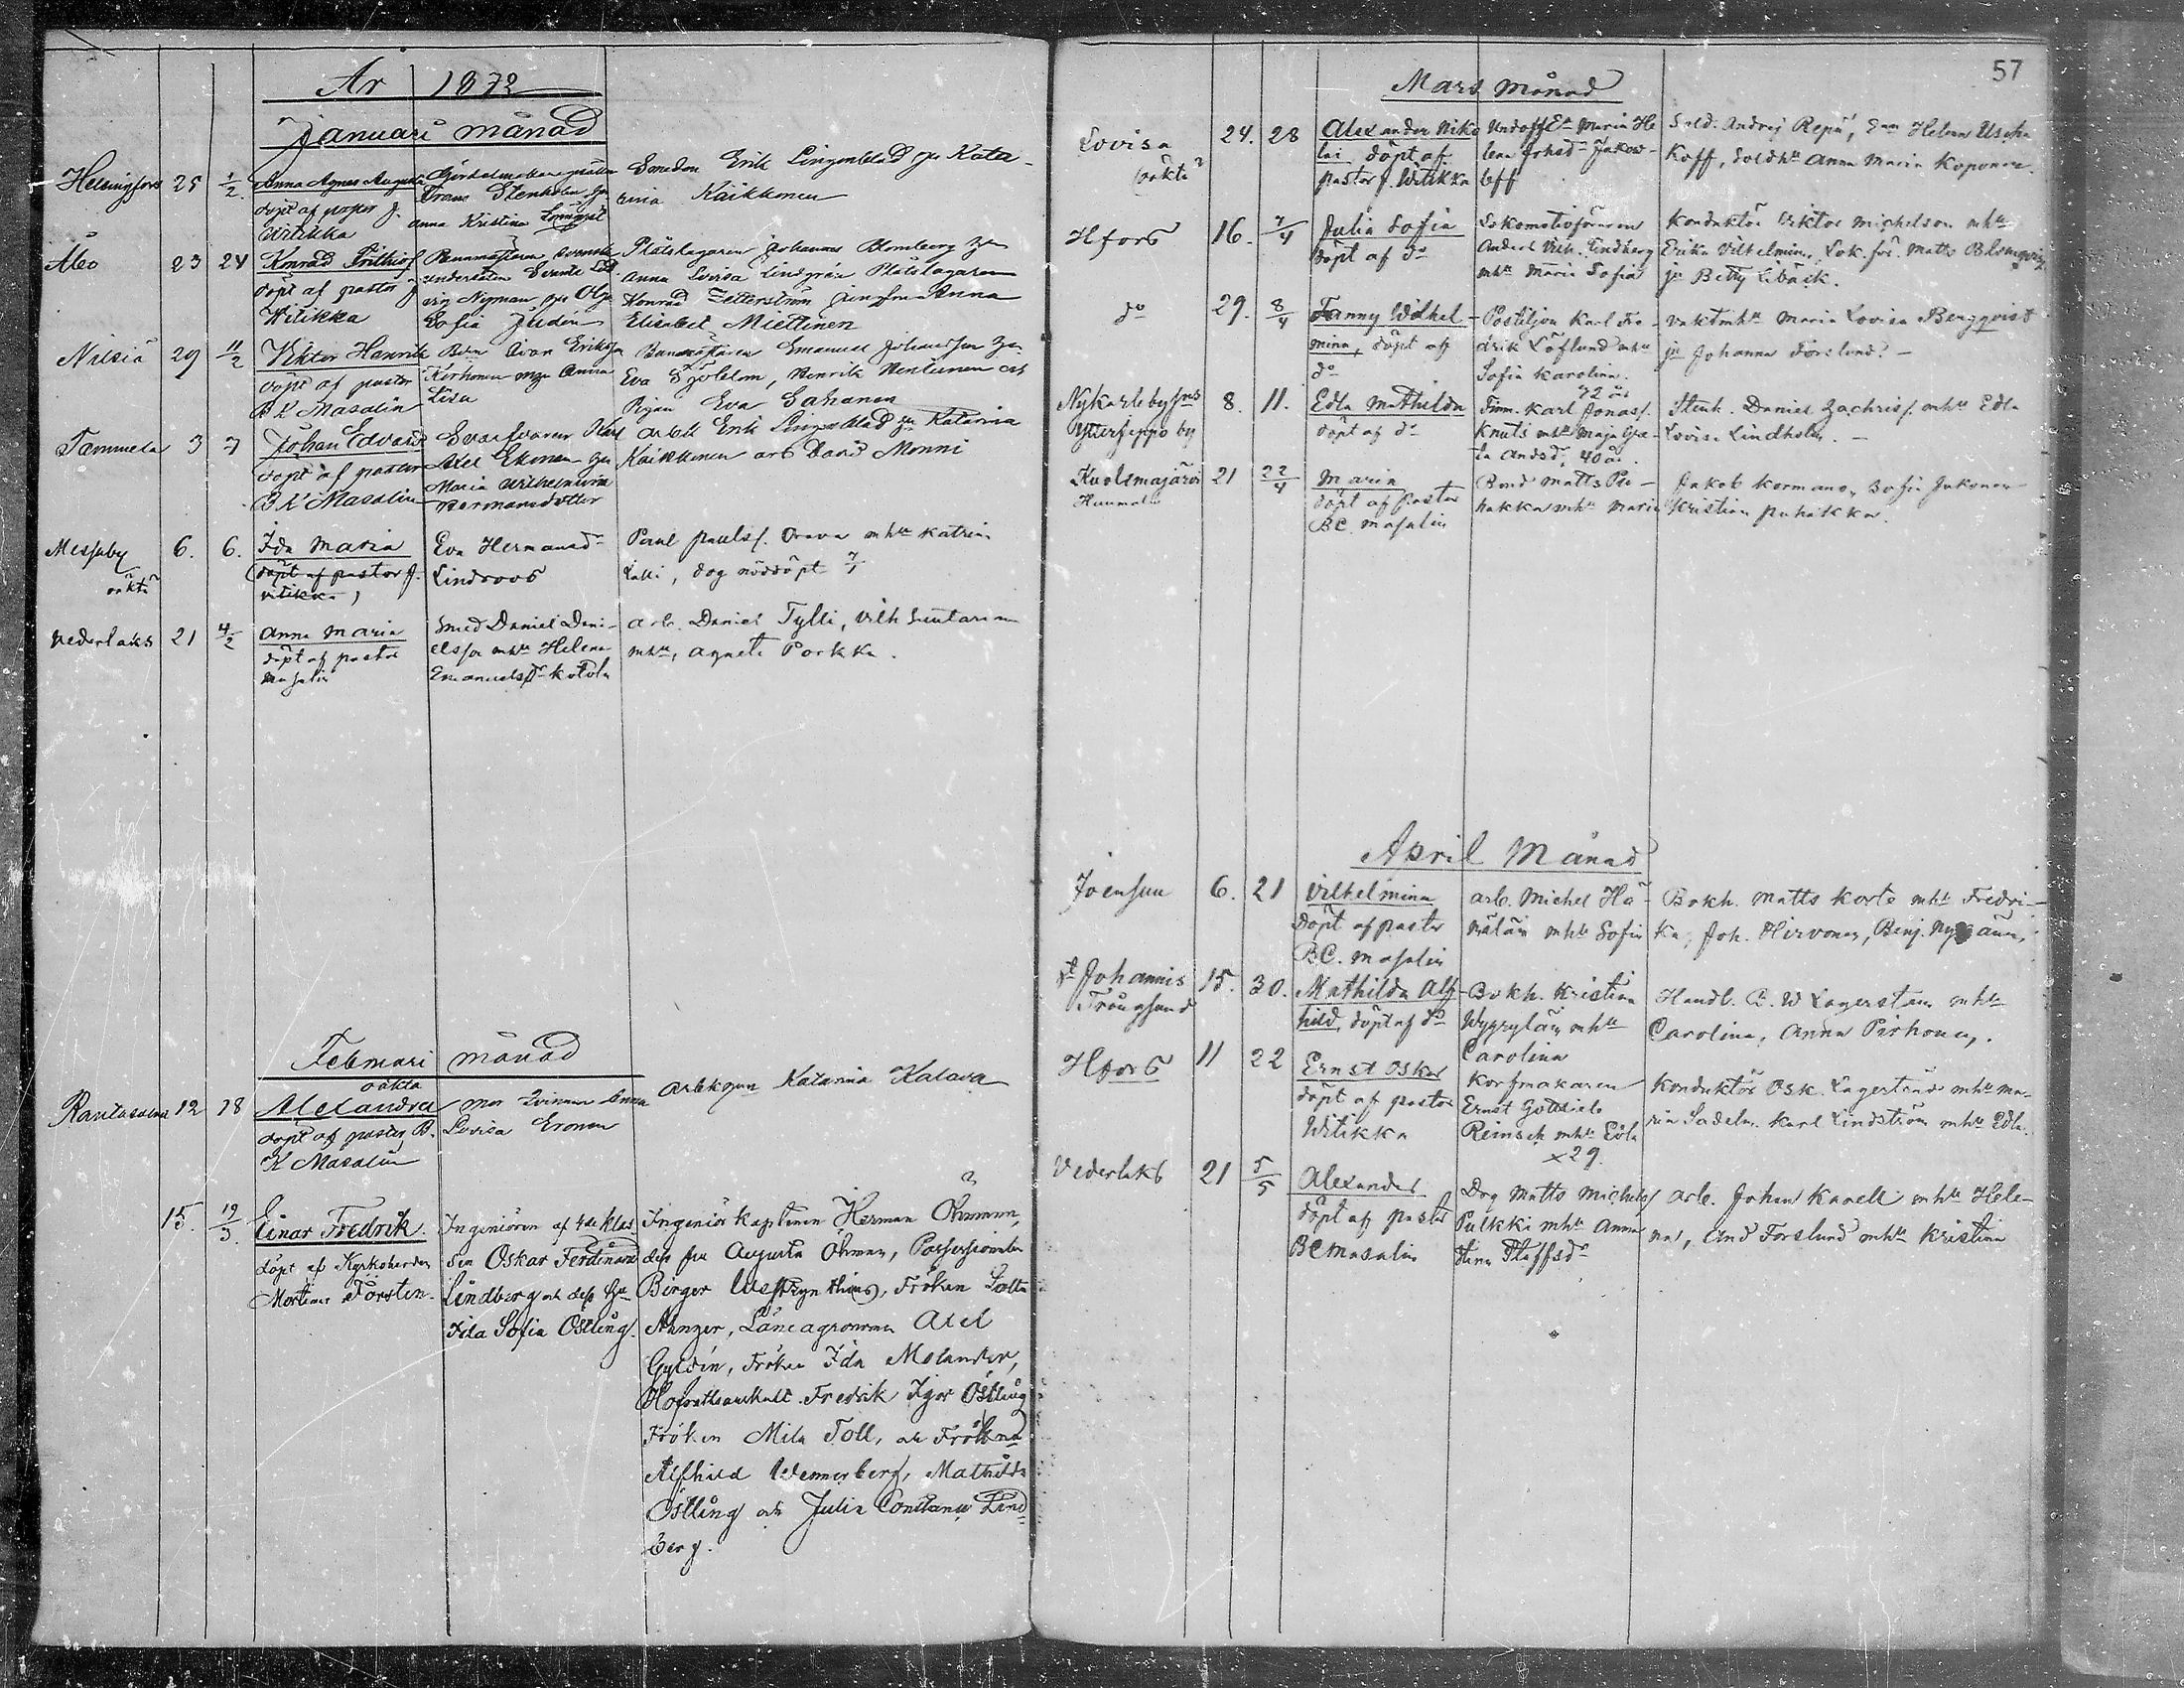 År 1872
Januari månad
Helsingfors 25 1/2 Anna Agnes Augusta
döpt af pastor J.
Witikka
Frans Stenholm
Anna Kristina
Smeden Erik Lingonblad Kata-
rina Kaikkonen
Åbo 23 24 Konrad Frithiof
döpt af pastor J
Witikka
undersåten
Nyman Olga
Sofia Judin
Plåtslagaren Johannes Blomberg
Anna Lovisa Lindgrén Plåtslagaren
Konrad Zetterström Anna
Elisabet Miettinen
Nilsiä 29 11/2 Viktor Henrik
döpt af pastor
B K Masalin
Ivar Eriksson
Korhonen Anna
Lisa
Banmästaren Emanuel Johansson
Eva Sjöblom, Henrik
Pigan Eva Sahanen
Tammela 3 7 Johan Edvard
döpt af pastor
B K Masalin
Svarfvaren Karl
Axel Ekman
Maria Wilhelmina
Hermansdotter
arbet Erik Lingonblad Katarina
Kaikkonen arb David Monni
Messuby 6. 6. Ida Maria
oäkta
döpt af pastor J.
Vitikka
Eva Hermansd
Lindroos
Paul Paulss. Orava mhu Katrin
Lalli, dog nöddöpt 7/1
Vederlaks 21 4/2 Anna Maria
döpt af pastor
Masalin
Smed Daniel Dani-
elsson mhu Helena
Emanuelsdr Kotola
arb. Daniel Tylli, Vilh
mhu, Agneta Porkka.
Februari månad
oäkta
Rantasalmi 12 18 Alexandra
döpt af pastor B.
K Masalin
mor qvinnan Anna
Lovisa Eronen
Katarina Kalava
15. 19/3. Einar Fredrik.
döpt af Kyrkoherden
Mortimer Törsten.
Ingeniören af 4de klas-
sen Oskar Ferdinand
Lindberg och dess fru
Ida Sofia Östling.
Ingeniörkaptenen Herman Öhman,
dess fru Augusta Öhman, Possessionaten
Birger Westzynthius, Fröken Lotta
Länsagronomen Axel
Gyldén, Fröken Ida Molander,
Fredrik Igor Östling
Fröken Mila Toll, och Fröknarna
Alfhild Wennerberg, Mathilda
Östling och Julia Constance Lind-
berg.
57
Mars månad
Lovisa 24. 28 Alexander Niko
oäkta
lai döpt af
pastor J. Witikka
Undoff Ea Maria He
lena Johsdr Jakow-
leff
Sold. Andrej Repin, Helena Uscha
koff, Soldhu Anna Maria Koponen.
Hfors 16. 7/4 Julia Sofia
döpt af do
Lokomotivföraren
Anders Vilh. Lindberg
mhu Maria Sofia
Konduktör Viktor Michelson mhu
Erika Vilhelmina, Lok.för. Matts Blomqvist
Betty Libäck.
do 29. 8/4 Fanny Wilhel-
mina, döpt af
do
Postiljon Karl Fre-
drik Löflund mhu
Sofia Karolina.
vaktmhu Maria Lovisa Bergqvist
Johanna Forslund. –
Nykarleby 8. 11. Edla Mathilda
Ytterjeppo by
döpt af do
42 år
Finn. Karl Jonass.
Knuts mhu Maja Gre-
ta Andsdr, 40 år.
Stenh. Daniel Zachriss. mhu Edla
Lovisa Lindholm. –
Kuolemajärvi 21 22/4 Maria
döpt af pastor
BC. Masalin
Bond Matts Pu-
hakka mhu Maria
Jakob Kormano, Sofia Jukonen
Kristian Puhakka.
April Månad
Joensuu 6. 21 Vilhelmina
döpt af pastor
BC. Masalin
arb. Michel Hä-
mäläin mhu Sofia
Bokh. Matts Korte mhu Fredri-
ka, Joh. Hirvonen, Benj.
St Johannis 15. 30. Mathilda Alf-
Trångsund
hild, döpt af do
Bokh. Kristian
mhu
Carolina
Handl. B. W Lagerstam mhu
Carolina, Anna Pirhonen.
Hfors 11 22 Ernst Oskar
döpt af pastor
Witikka
Korfmakaren
Ernst Gottlieb
Reinsch mhu Edla
x 29.
Konduktör Osk. Lagerstedt mhu Ma-
ria Sadelm. Karl Lindström mhu Edla.
Vederlaks 21 5/5 Alexander
döpt af pastor
BC Masalin
Drg Matts Michels
Pulkki mhu Anna
Stina Staffsdr
arb. Johan Kavell mhu Hele-
na, And Forslund mhu Kristina